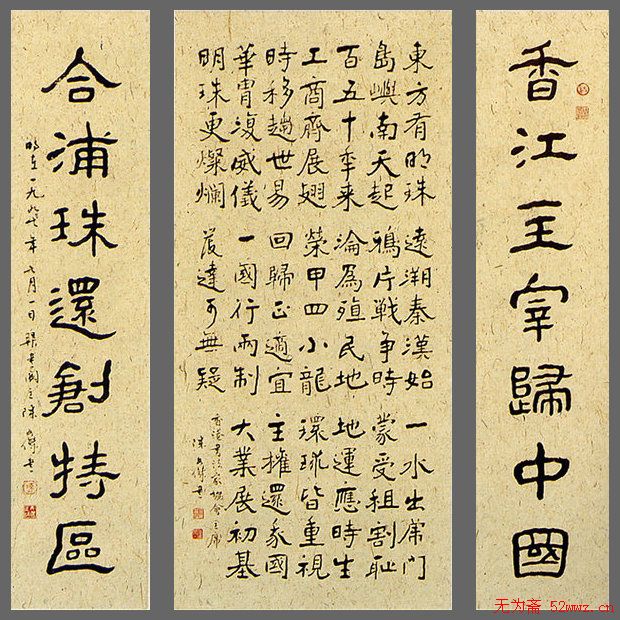 香江主宰歸中國
東方有明珠 遠溯秦漢始 一水出虎門
島嶼南天起 鴉片戰爭時 蒙受租割恥
百五十年来 淪為殖民地 地運應時生
工商齊展翅 榮甲四小龍 環球皆重視
時移趨世易 回歸正適宜 主權還家國
華胄復威儀 一國行兩制 大業展初基
明珠更燦爛 發達可無疑
香港書法家協會主席
陳文傑書
合浦珠還創特區
時在一九九七年七月一日 陳文傑書
无为斋 52wwz.cn